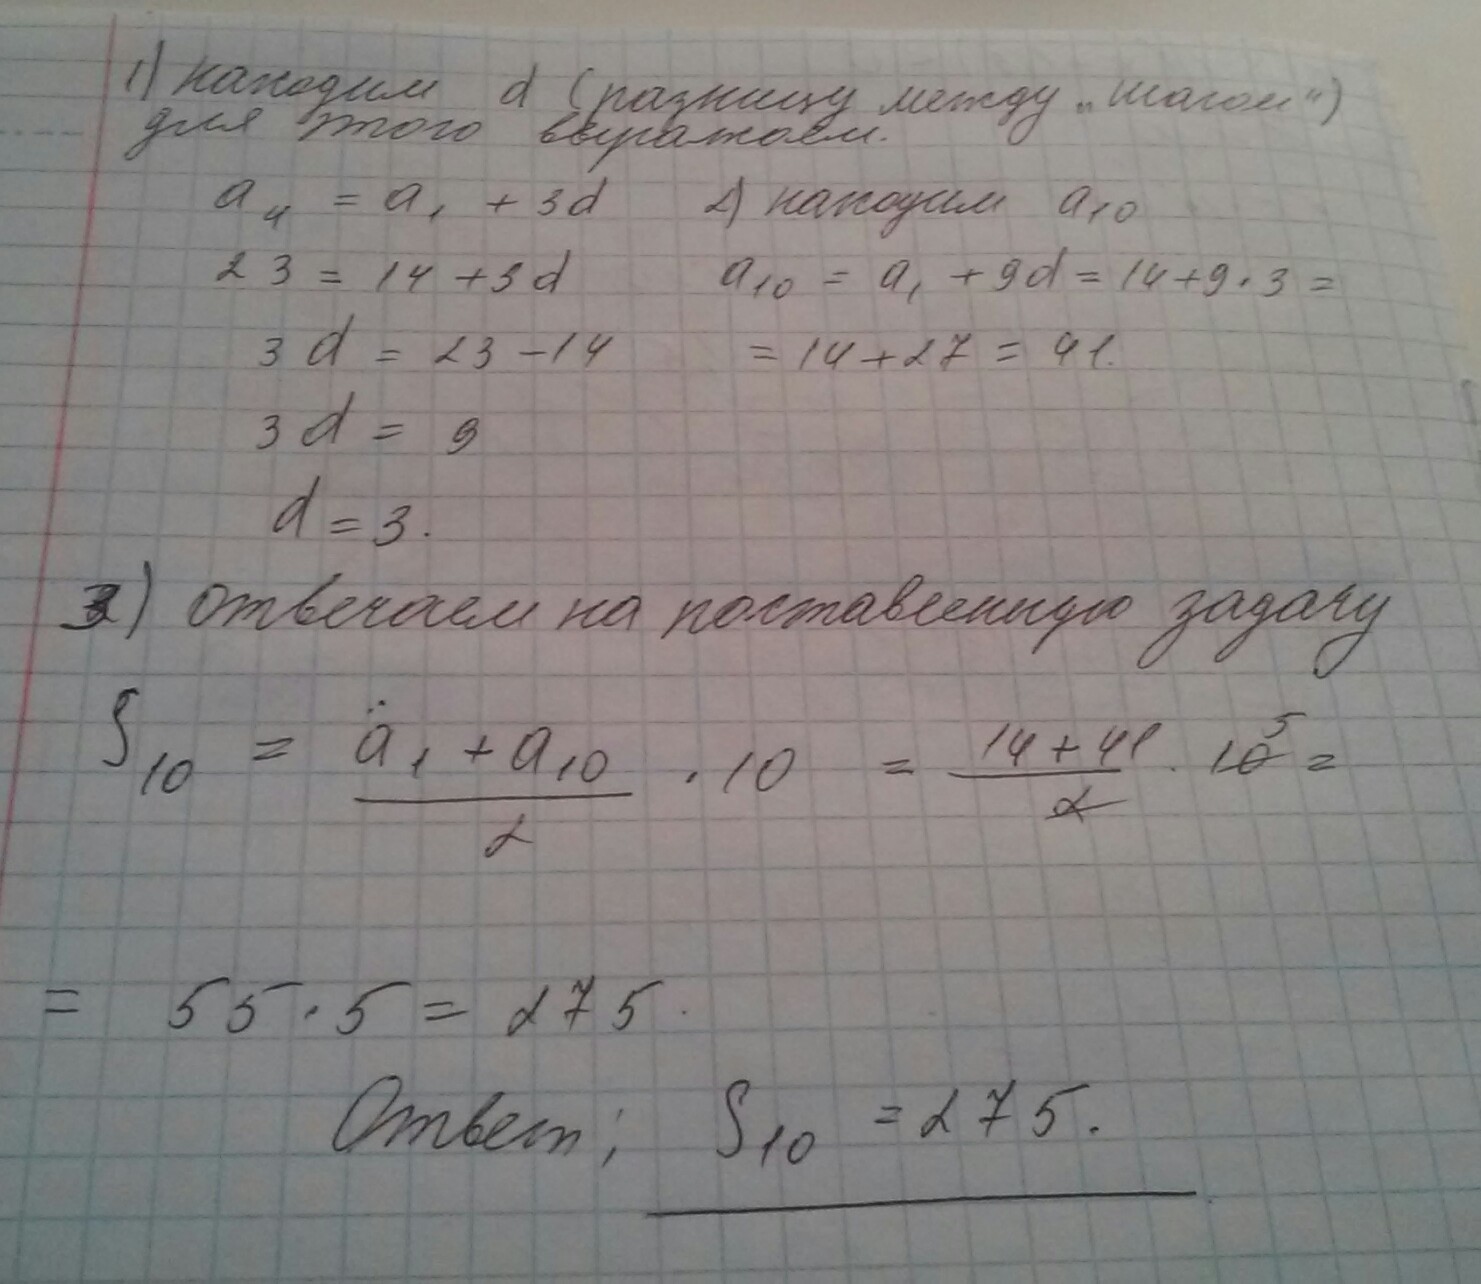 1) находим d (разницу между „шагом")
для этого выражаем.
a₄ = a₁ + 3d
23 = 14 + 3d
3d = 23 - 14
3d = 9
d = 3.
2) находим a₁₀
a₁₀ = a₁ + 9d = 14 + 9 · 3 =
= 14 + 27 = 41.
3) отвечаем на поставленную задачу
S₁₀ = (a₁ + a₁₀)/2 · 10 = (14 + 41)/2 · 10 5 =
= 55 · 5 = 275.
Ответ; S₁₀ = 275.